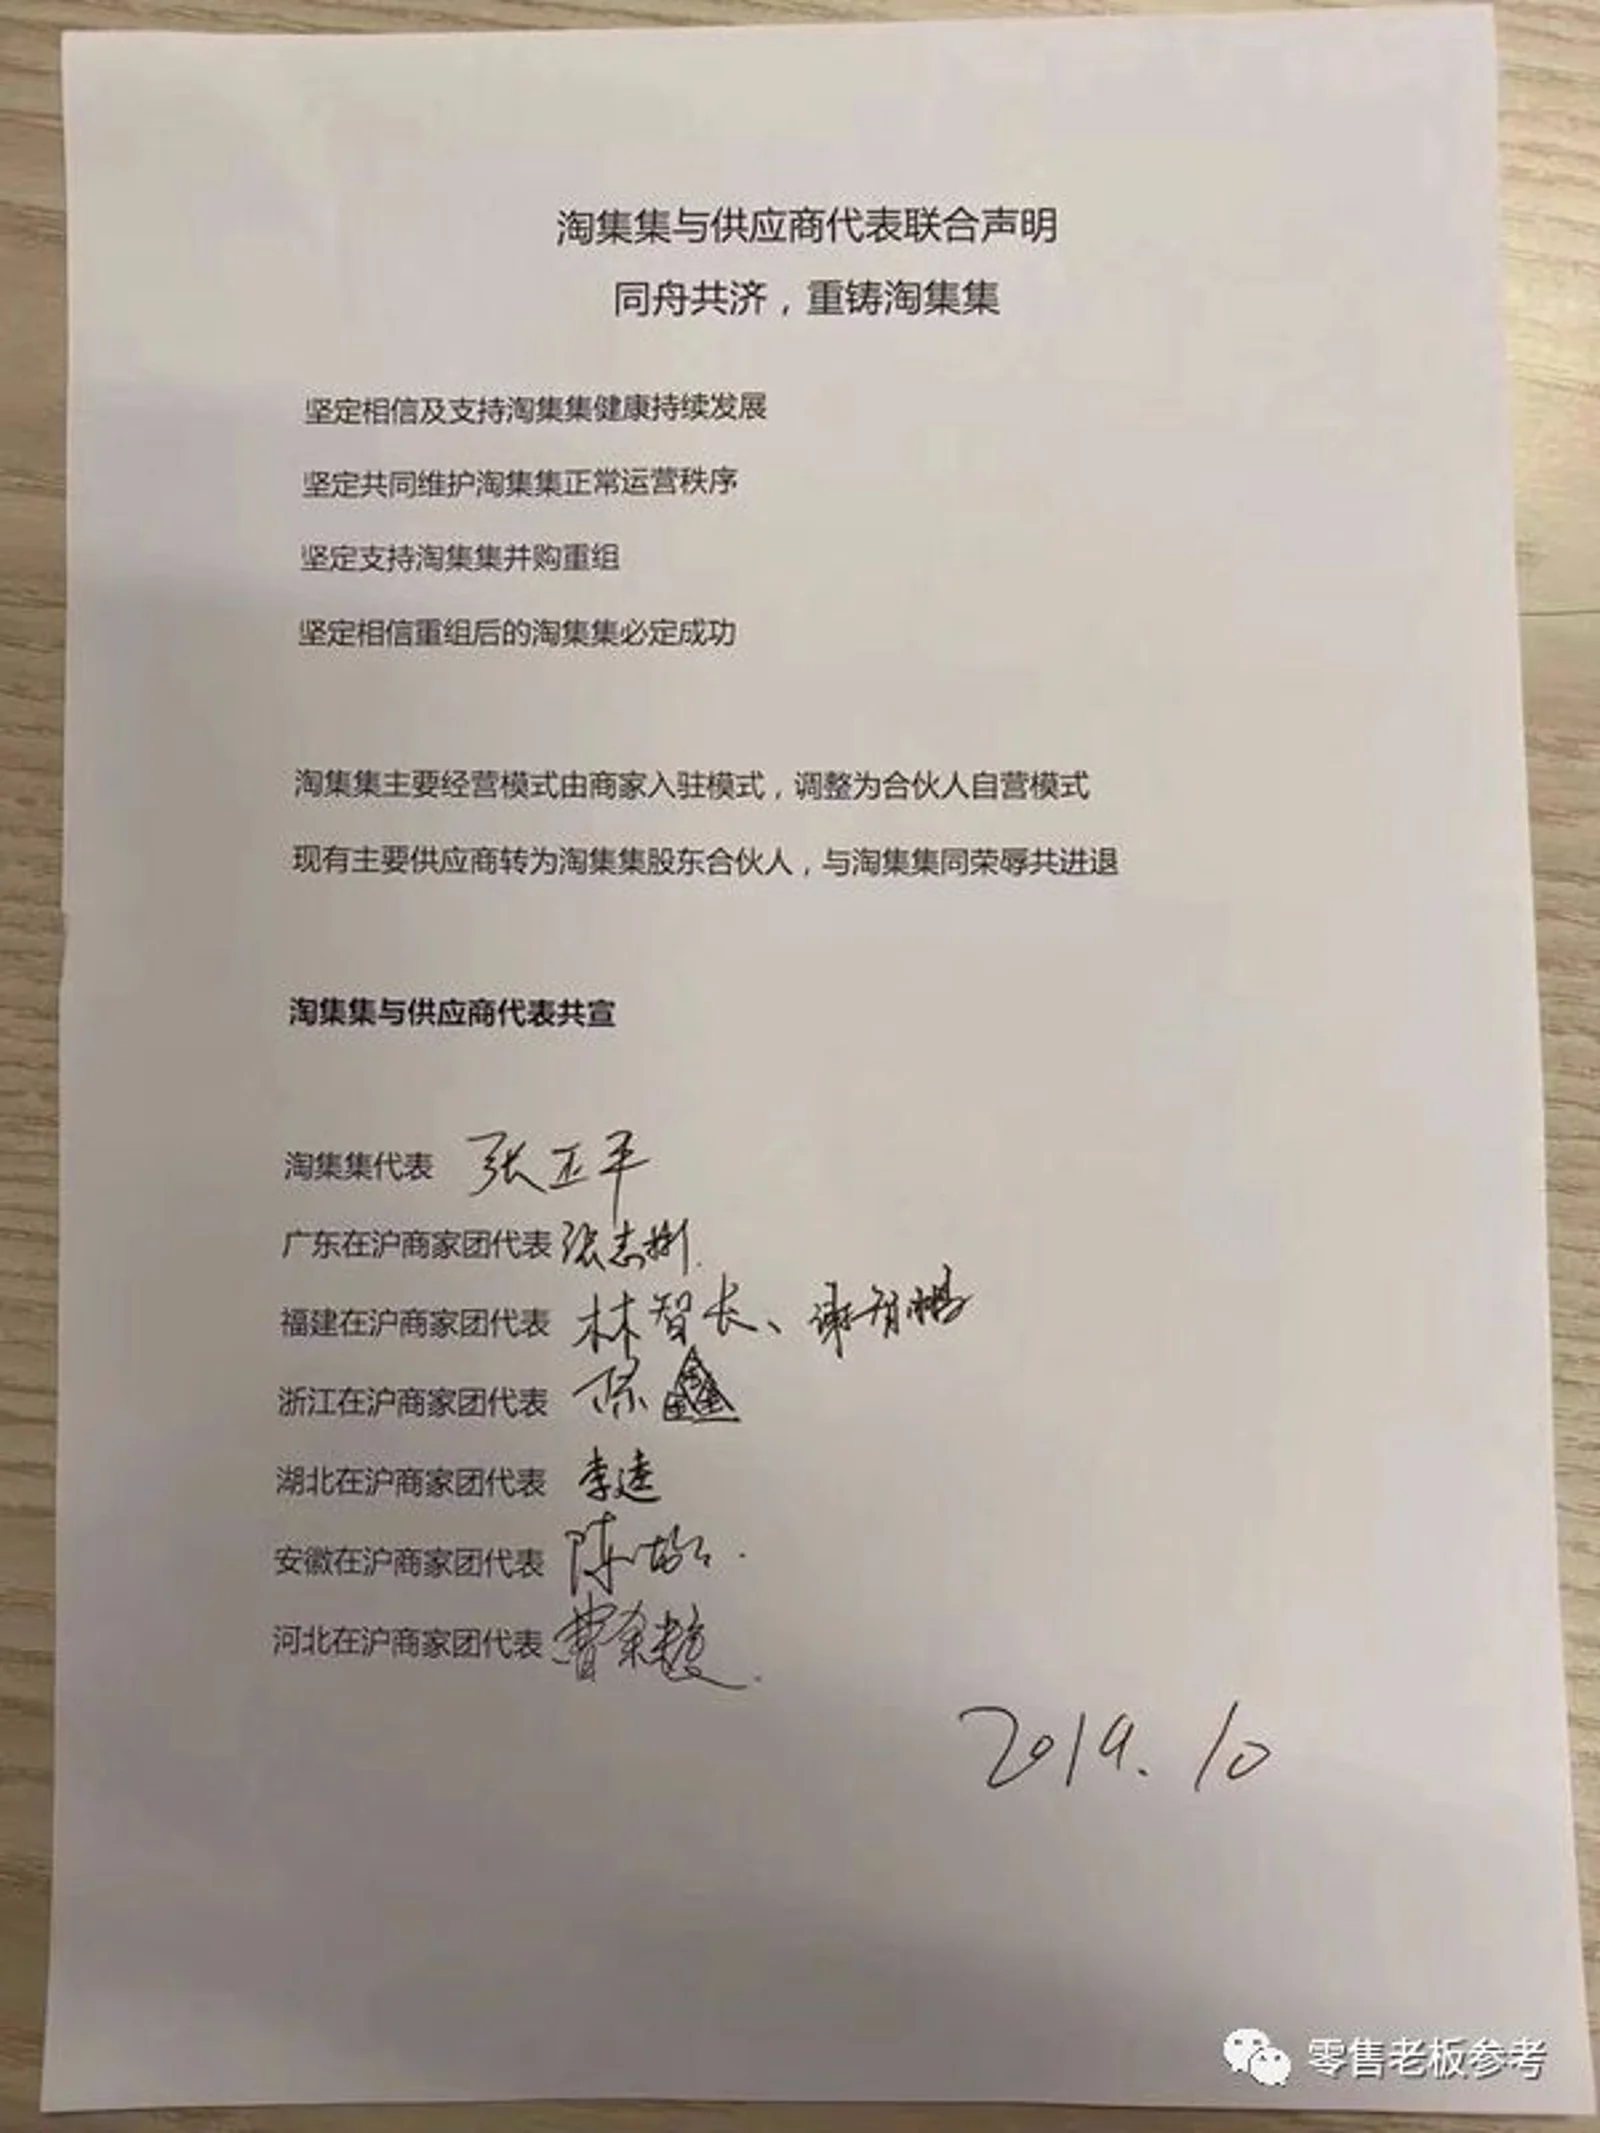 淘集集与供应商代表联合声明
同舟共济，重铸淘集集
坚定相信及支持淘集集健康持续发展
坚定共同维护淘集集正常运营秩序
坚定支持淘集集并购重组
坚定相信重组后的淘集集必定成功
淘集集主要经营模式由商家入驻模式，调整为合伙人自营模式
现有主要供应商转为淘集集股东合伙人，与淘集集同荣辱共进退
淘集集与供应商代表共宣
淘集集代表 张正平
广东在沪商家团代表 张志
福建在沪商家团代表 林智长、谢
浙江在沪商家团代表
湖北在沪商家团代表 李
安徽在沪商家团代表 陈
河北在沪商家团代表 曹
2019.10
零售老板参考